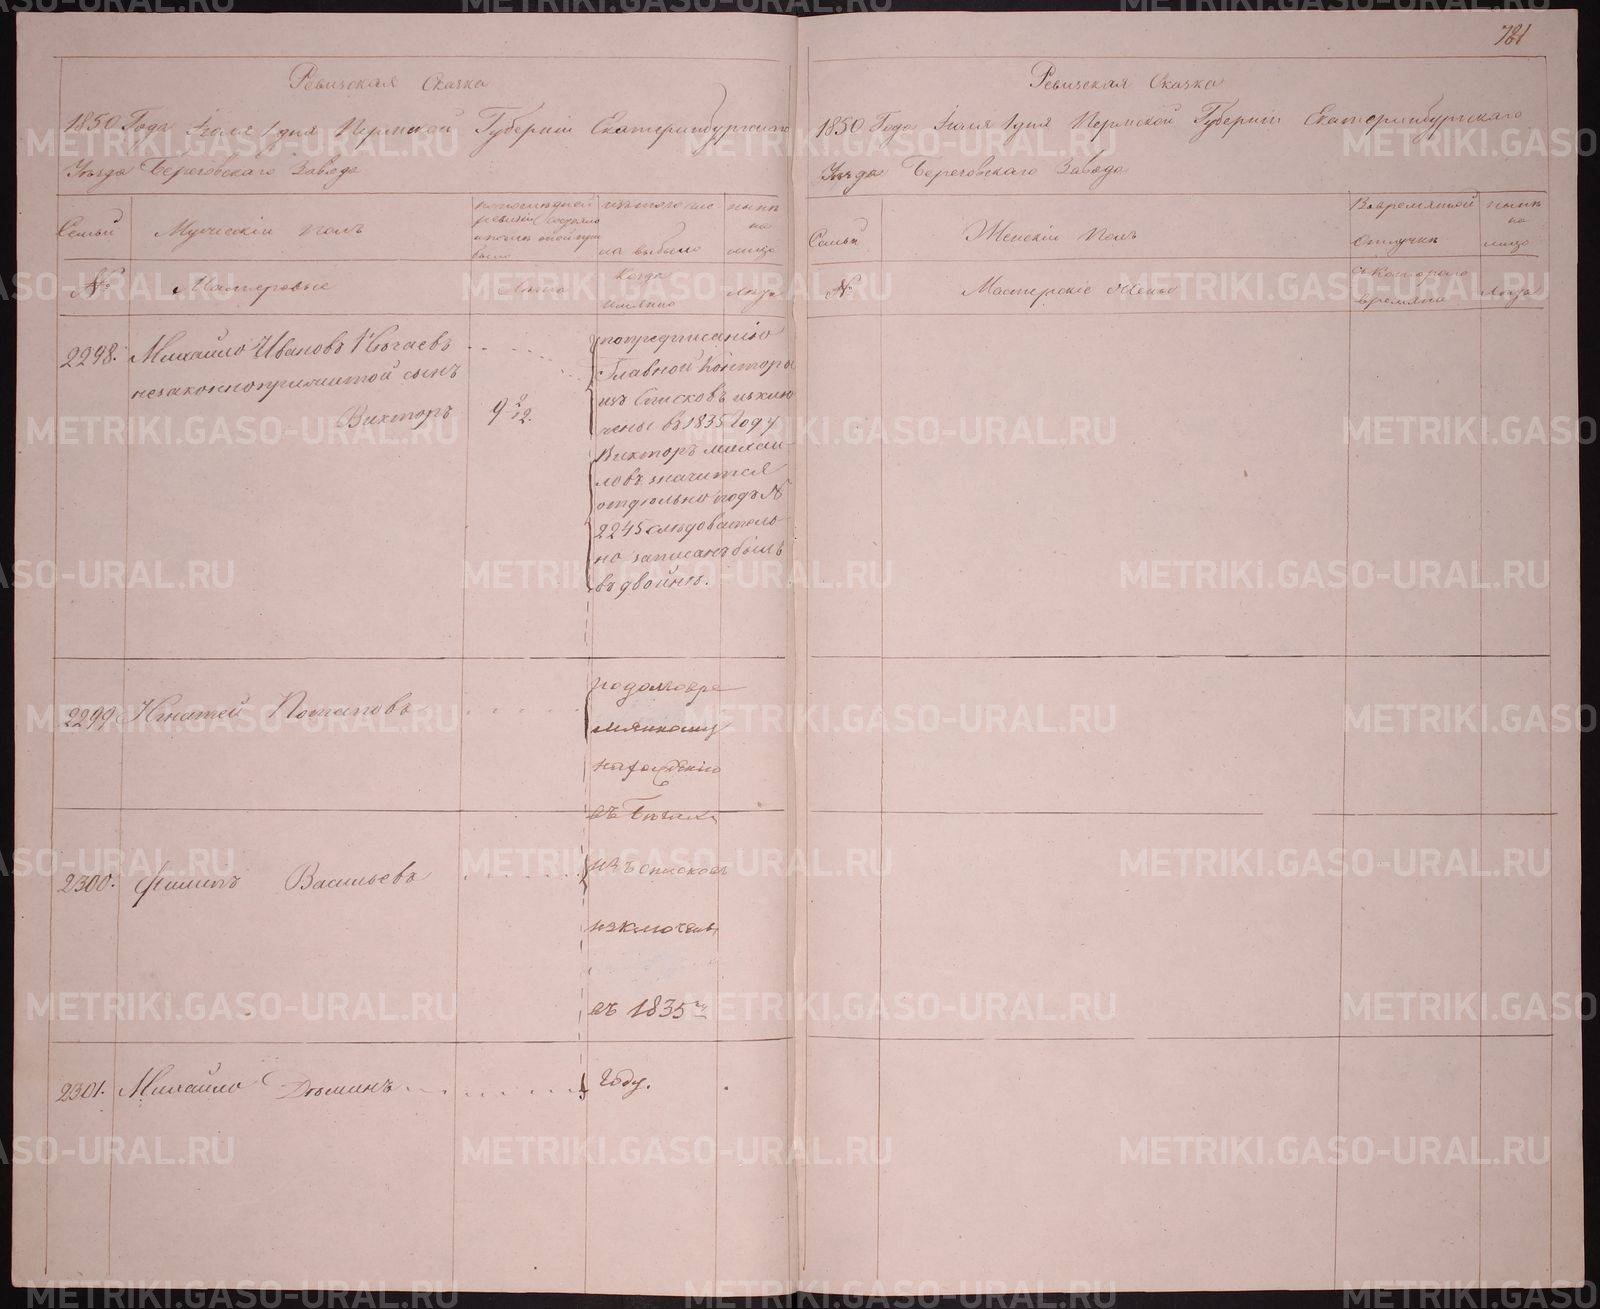 781
Ревизская Сказка
1850 Года Іюля 1 дня Пермской Губерніи Екатеринбургскаго
Уѣзда Березовскаго Завода
Семьи
Мужескій полъ
ревизіи состояло
изъ того числа
на выбыло
нынѣ
на
лицо
№
Мастеровые
Лѣта
Когда
имянно
Лѣта
2298. Михайло Ивановъ
незаконноприжитой сынъ
Викторъ 9 2/12.
по предписанію
Главной Конторы
изъ Списковъ исклю
чены въ 1835 Году
Викторъ Михаи
ловъ значится
отдѣльно подъ №
2245 слѣдователь
но записанъ былъ
въ двойнѣ.
2299 Игнатей Потаповъ
по долговре
мянному
нахожденію
въ бѣгахъ
2300. Филипъ Васильевъ
изъ списковъ
изключены
въ 1835
2301. Михайло Дѣминъ
году.
Ревизская Сказка
1850 Года Іюля 1 дня Пермской Губерніи Екатеринбургскаго
Уѣзда Березовскаго Завода
Семьи
Женскій полъ
Во временной
отлучки
нынѣ
на
лицо
№
Мастерскіе жены
съ Котораго
времяни
Лѣта
METRIKI.GASO-URAL.RU